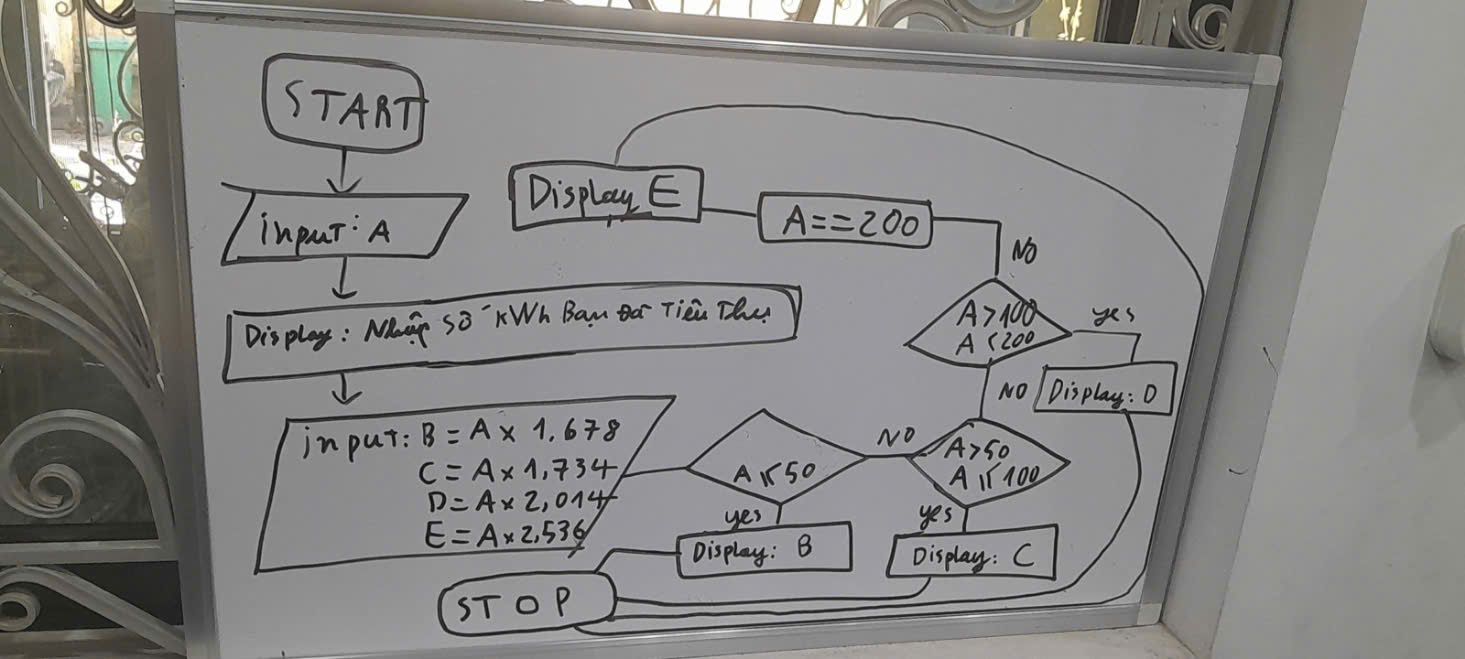 START
input: A
Display: Nhập số kWh Bạn Đã Tiêu Thụ
input: B = A x 1,678
C = A x 1,734
D = A x 2,014
E = A x 2,536
A ≤ 50
yes
Display: B
NO
A > 50
A ≤ 100
yes
Display: C
NO
A > 100
A < 200
yes
Display: D
NO
A == 200
Display E
STOP